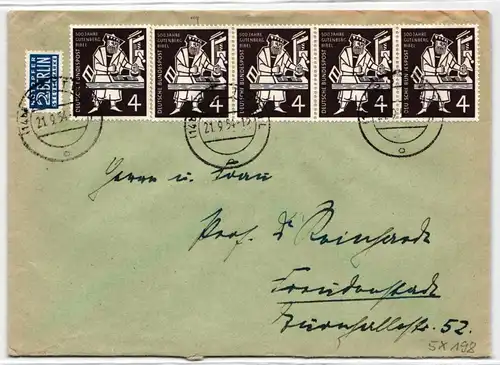 500 JAHRE GUTENBERG BIBEL
DEUTSCHE BUNDESPOST
4
500 JAHRE GUTENBERG BIBEL
DEUTSCHE BUNDESPOST
4
500 JAHRE GUTENBERG BIBEL
DEUTSCHE BUNDESPOST
4
500 JAHRE GUTENBERG BIBEL
DEUTSCHE BUNDESPOST
4
500 JAHRE GUTENBERG BIBEL
DEUTSCHE BUNDESPOST
4
2 BERLIN
21.9.54
21.9.54
Herrn u. Frau
Prof. Dr Reinhardt
Freudenstadt
Turnhallestr. 52.
5x 198